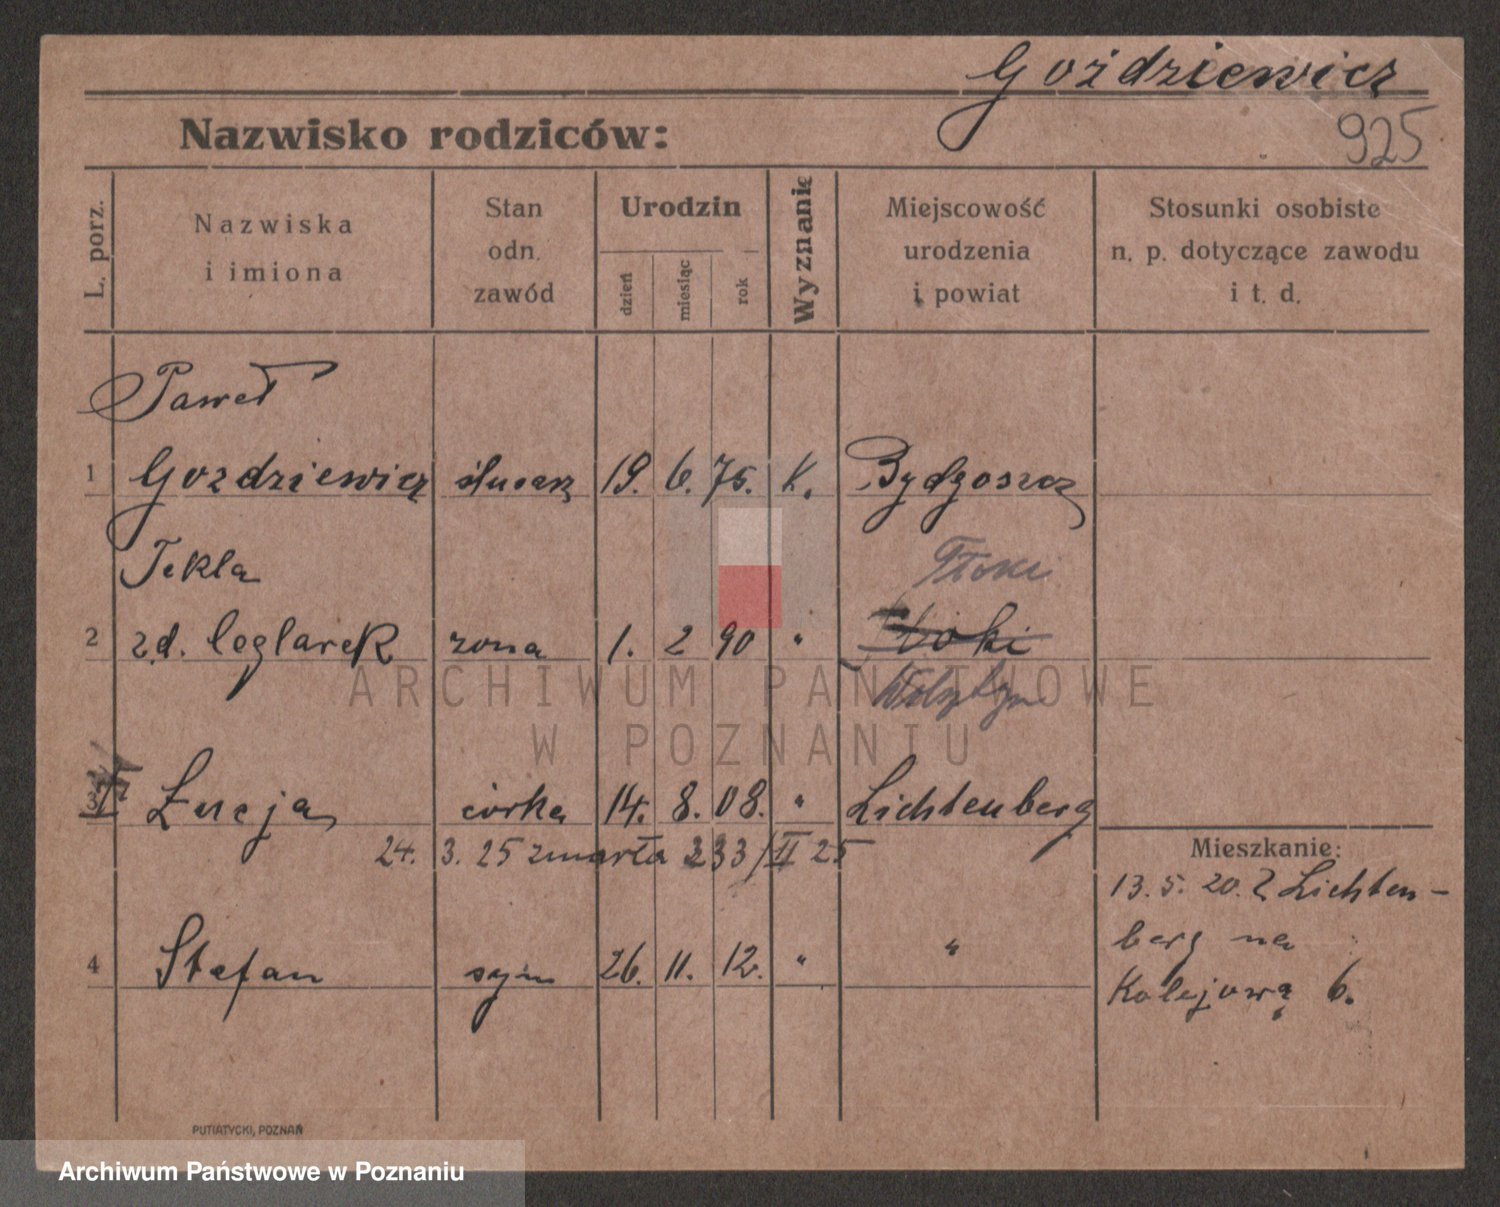 Goździewicz
925
Nazwisko rodziców:
L. porz.
Nazwiska
i imiona
Stan
odn.
zawód
Urodzin
dzień
miesiąc
rok
Wyznanie
Miejscowość
urodzenia
i powiat
Stosunki osobiste
n. p. dotyczące zawodu
i t. d.
Paweł
1 Gozdziewicz ślusarz 19. 6. 75. K. Bydgoszcz
Tekla Tłoki
2 zd. Ceglarek zona 1. 2 90 "
ARCHIWUM PAŃSTWOWE
W POZNANIU
Łucja córka 14. 8. 08. " Lichtenberg
24. 3. 25 zmarła 233/II 25
4 Stefan syn 26. 11. 12. " "
Mieszkanie:
13. 5. 20. Z Lichten-
berg na
Kolejową 6.
PUTIATYCKI, POZNAŃ
Archiwum Państwowe w Poznaniu